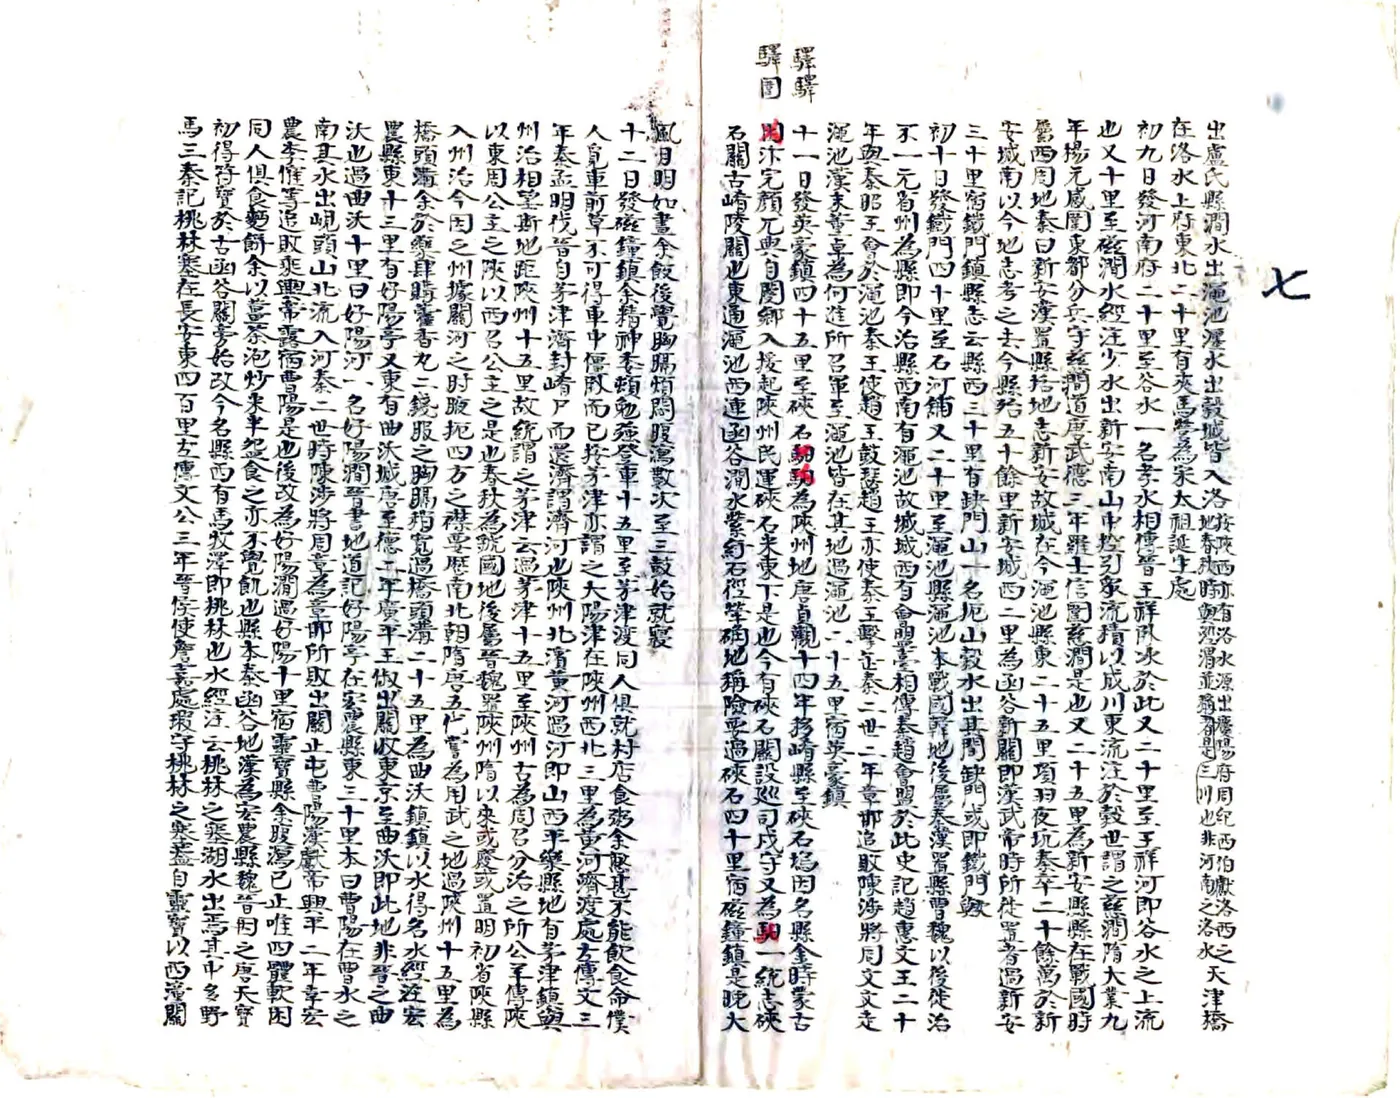 七
驛驛
驛圊
出盧氏縣澗水出澠池瀍水出穀城皆入洛按陝西亦有洛水源出慶陽府周紀西伯獻洛西之地春秋時與涇渭並稱者是三川也非河南之洛水天津橋
在洛水上府東北二十里有夾馬營為宋太祖誕生處
初九日發河南府二十里至谷水一名孝水相傳晉王祥臥冰於此又二十里至王祥河即谷水之上流
也又十里至磁澗水經注少水出新安南山中控引衆流積以成川東流注於穀世謂之茲澗隋大業九
年楊元感圍東都分兵守茲澗道唐武德三年羅士信圍茲澗是也又二十五里為新安縣縣在戰國時
屬西周地秦曰新安漢置縣括地志新安故城在今澠池縣東二十五里項羽夜坑秦卒二十餘萬於新
安城南以今地志考之去今縣殆五十餘里新安城西二里為函谷新關即漢武帝時所徙置者過新安
三十里宿鐵門鎮縣志云縣西三十里有缺門山一名扼山穀水出其間缺門或即鐵門歟
初十日發鐵門四十里至石河鋪又二十里至澠池縣澠池本戰國韓地後屬秦漢置縣曹魏以後徙治
不一元省州為縣即今治縣西南有澠池故城城西有會盟臺相傳秦趙會盟於此史記趙惠文王二十
年與秦昭王會於澠池秦王使趙王鼓瑟趙王亦使秦王擊缶秦二世二年章邯追敗陳涉將周文文走
澠池漢末董卓為何進所召軍至澠池皆在其地過澠池二十五里宿英豪鎮
十一日發英豪鎮四十五里至硤石馹馹為陝州地唐貞觀十四年移崤縣至硤石塢因名縣金時蒙古
圍汴完顏兀典自閿鄉入援起陝州民運硤石米東下是也今有硤石關設廵司戍守又為馹一統志硤
石關古崤陵關也東通澠池西連函谷澗水縈紆石徑犖确地稱險要過硤石四十里宿磁鐘鎮是晚大
風月明如晝余飯後覺胸膈煩悶腹瀉數次至三鼓始就寢
十二日發磁鐘鎮余精神委頓勉強登車十五里至茅津渡同人俱就村店食粥余憊甚不能飲食命僕
人覓車前草不可得車中僵臥而已按茅津亦謂之大陽津在陝州西北三里為黃河濟渡處左傳文三
年秦孟明伐晉自茅津濟封崤尸而還濟謂濟河也陝州北濱黃河過河即山西平樂縣地有茅津鎮與
州治相望斯地距陝州十五里故統謂之茅津云過茅津十五里至陝州古為周召分治之所公羊傳陝
以東周公主之陝以西召公主之是也春秋為虢國地後屬晉魏置陝州隋以來或廢或置明初省陝縣
入州治今因之州據關河之肘腋扼四方之襟要歷南北朝隋唐五代嘗為用武之地過陝州十五里為
橋頭溝余於藥肆購藿香丸二錢服之胸膈稍寬過橋頭溝二十五里為曲沃鎮鎮以水得名水經注宏
農縣東十三里有好陽亭又東有曲沃城唐至德二年廣平王俶出關收東京至曲沃即此地非晉之曲
沃也過曲沃十里曰好陽河一名好陽澗晉書地道記好陽亭在宏農縣東三十里本曰曹陽在曹水之
南其水出峴頭山北流入河秦二世時陳涉將周章為章邯所敗出關止屯曹陽漢獻帝興平二年幸宏
農李傕等追敗乘輿帝露宿曹陽是也後改為好陽澗過好陽十里宿靈寶縣余腹瀉已止唯四體軟困
同人俱食麵餅余以薑茶泡炒米半盌食之亦不覺飢也縣本秦函谷地漢為宏農縣魏晉因之唐天寶
初得符寶於古函谷關旁始改今名縣西有馬牧澤即桃林也水經注云桃林之塞湖水出焉其中多野
馬三秦記桃林塞在長安東四百里左傳文公三年晉侯使詹嘉處瑕守桃林之塞蓋自靈寶以西潼關